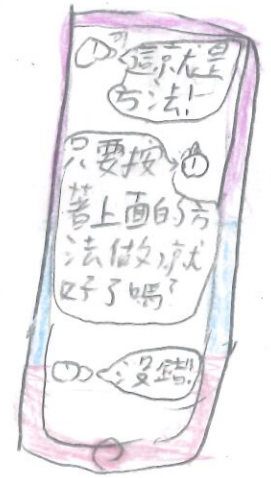 這就是
方法!
只要按
著上面的方
法做就
好了嗎?
沒錯!